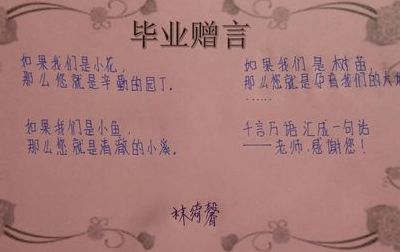 毕业赠言
如果我们是小花,
那么您就是辛勤的园丁.
如果我们是小鱼
那么您就是清澈的小溪。
如果我们是树苗,
那么您就是孕育我们的大
……
千言万语汇成一句话
——老师,感谢您!
林绮馨